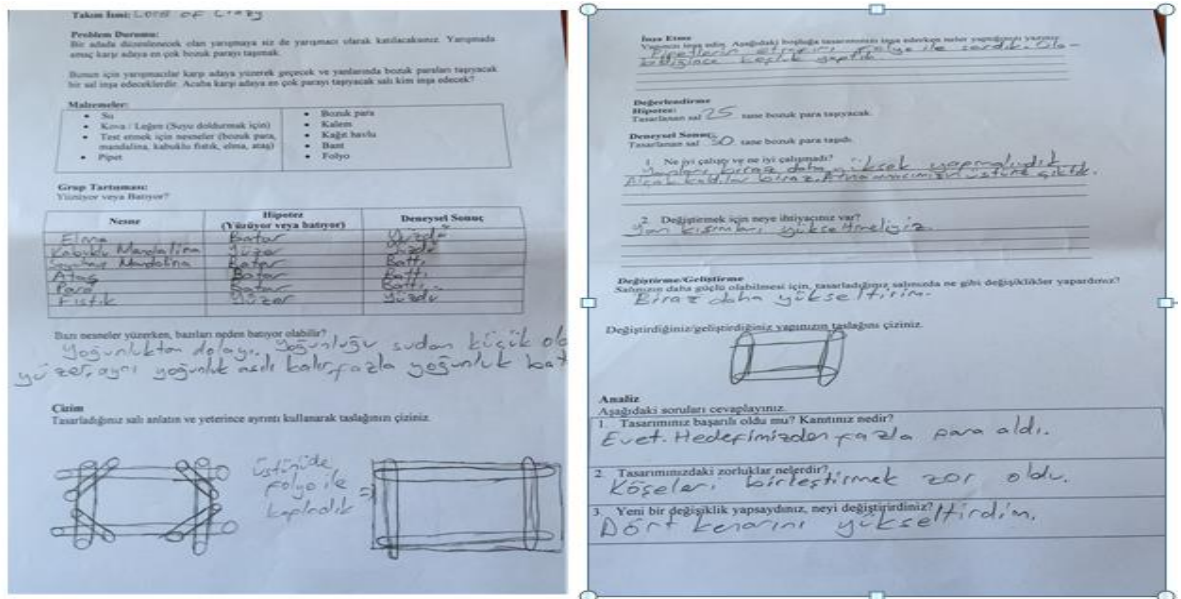 Takım İsmi: Lord of Crazy
Problem Durumu:
Bir adada düzenlenecek olan yarışmaya siz de yarışmacı olarak katılacaksınız. Yarışmada
amaç karşı adaya en çok bozuk parayı taşımak.
Bunun için yarışmacılar karşı adaya yüzerek geçecek ve yanlarında bozuk paraları taşıyacak
bir sal inşa edeceklerdir. Acaba karşı adaya en çok parayı taşıyacak salı kim inşa edecek?
Malzemeler:
• Su
• Kova / Leğen (Suyu doldurmak için)
• Test etmek için nesneler (bozuk para,
mandalina, kabuklu fıstık, elma, ataş)
• Pipet
• Bozuk para
• Kalem
• Kağıt havlu
• Bant
• Folyo
Grup Tartışması:
Yüzüyor veya Batıyor?
Nesne Hipotez Deneysel Sonuç
(Yüzüyor veya batıyor)
Elma Batar Yüzdü
Kabuklu Mandalina Yüzer Yüzdü
Soyulmuş Mandalina Batar Battı
Ataş Batar Battı
Para Batar Battı
Fıstık Yüzer Yüzdü
Bazı nesneler yüzerken, bazıları neden batıyor olabilir?
Yoğunluktan dolayı. Yoğunluğu sudan küçük ola
yüzer, aynı yoğunluk asılı kalır, fazla yoğunluk bat
Çizim
Tasarladığınız salı anlatın ve yeterince ayrıntı kullanarak taslağınızı çiziniz.
üstünüde
folyo ile
kapladık
=
İnşa Etme
Yapınızı inşa edin. Aşağıdaki boşluğa tasarımınızı inşa ederken neler yaptığınızı yazınız.
Pipetlerin etrafını folyo ile sardık. Ola-
bildiğince boşluk yaptık.
Değerlendirme
Hipotez:
Tasarlanan sal 25 tane bozuk para taşıyacak.
Deneysel Sonuç:
Tasarlanan sal 30 tane bozuk para taşıdı.
1. Ne iyi çalıştı ve ne iyi çalışmadı?
Yanları biraz daha yüksek yapmalıydık
Alçak kaldılar biraz. Ama amacımızın üstüne çıktık.
2. Değiştirmek için neye ihtiyacınız var?
Yan kısımları yükseltmeliyiz.
Değiştirme/Geliştirme
Salınızın daha güçlü olabilmesi için, tasarladığınız salınızda ne gibi değişiklikler yapardınız?
Biraz daha yükseltirim.
Değiştirdiğiniz/geliştirdiğiniz yapınızın taslağını çiziniz.
Analiz
Aşağıdaki soruları cevaplayınız.
1. Tasarımınız başarılı oldu mu? Kanıtınız nedir?
Evet. Hedefimizden fazla para aldı.
2. Tasarımınızdaki zorluklar nelerdir?
Köşeleri birleştirmek zor oldu.
3. Yeni bir değişiklik yapsaydınız, neyi değiştirirdiniz?
Dört kenarını yükseltirdim.